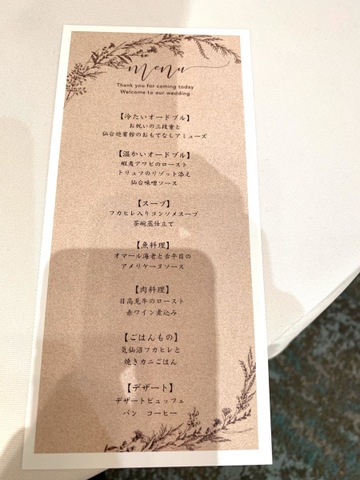 menu
Thank you for coming today
Welcome to our wedding
【冷たいオードブル】
お祝いの三段重と
仙台迎賓館のおもてなしアミューズ
【温かいオードブル】
蝦夷アワビのロースト
トリュフのリゾット添え
仙台味噌ソース
【スープ】
フカヒレ入りコンソメスープ
茶碗蒸仕立て
【魚料理】
オマール海老と古平目の
アメリケーヌソース
【肉料理】
日高見牛のロースト
赤ワイン煮込み
【ごはんもの】
気仙沼フカヒレと
焼きカニごはん
【デザート】
デザートビュッフェ
パン　コーヒー